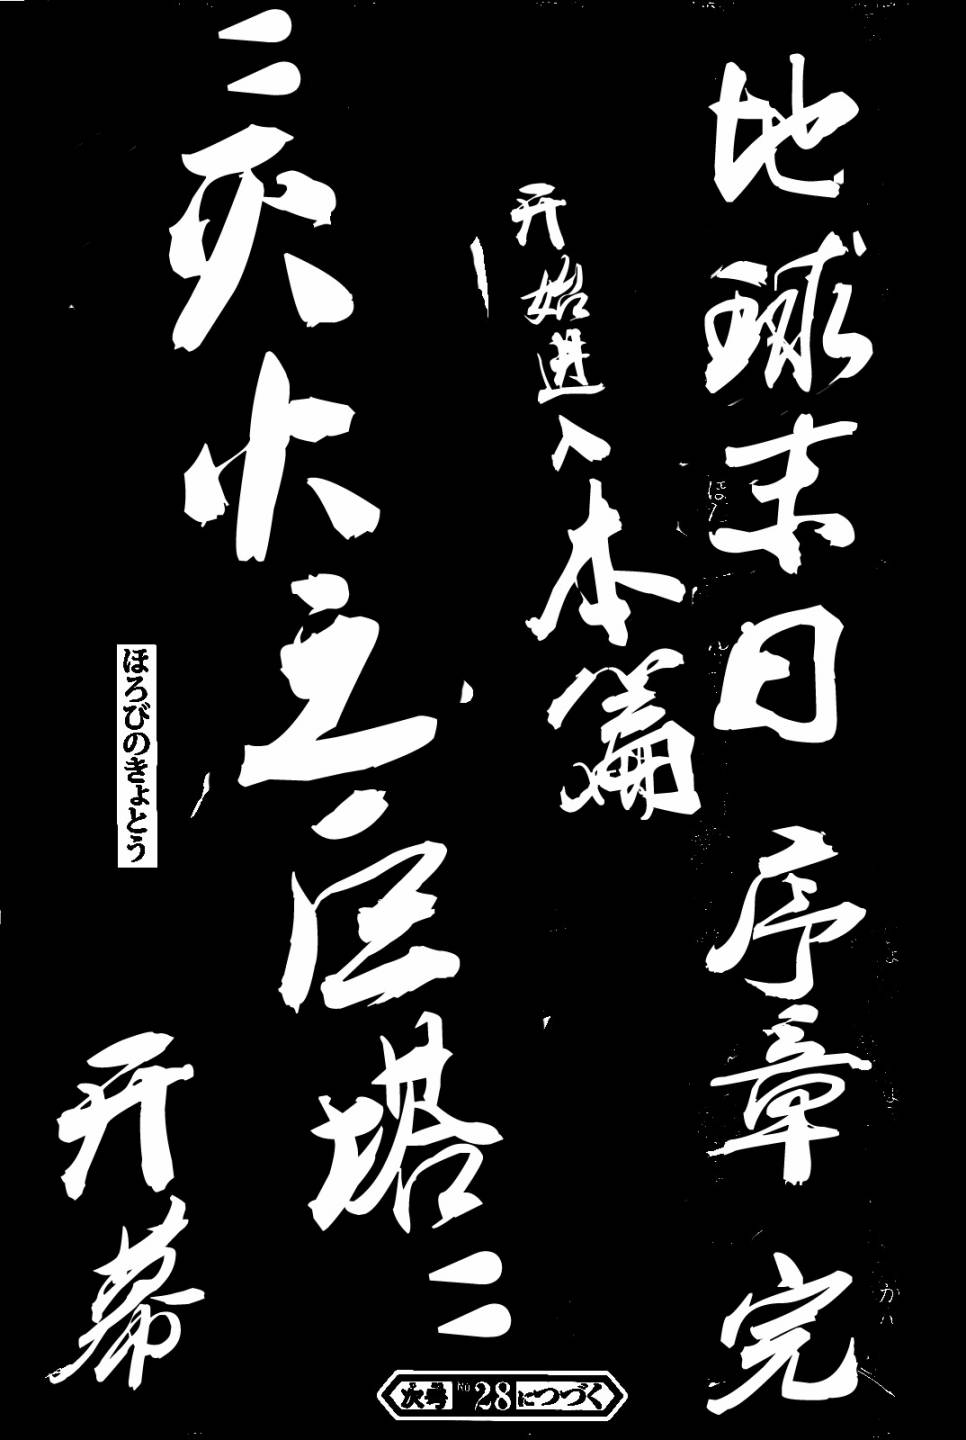 地球末日 序章 完
开始进入本篇
〝灭火之巨塔〟
ほろびのきょとう
开幕
次号No28につづく